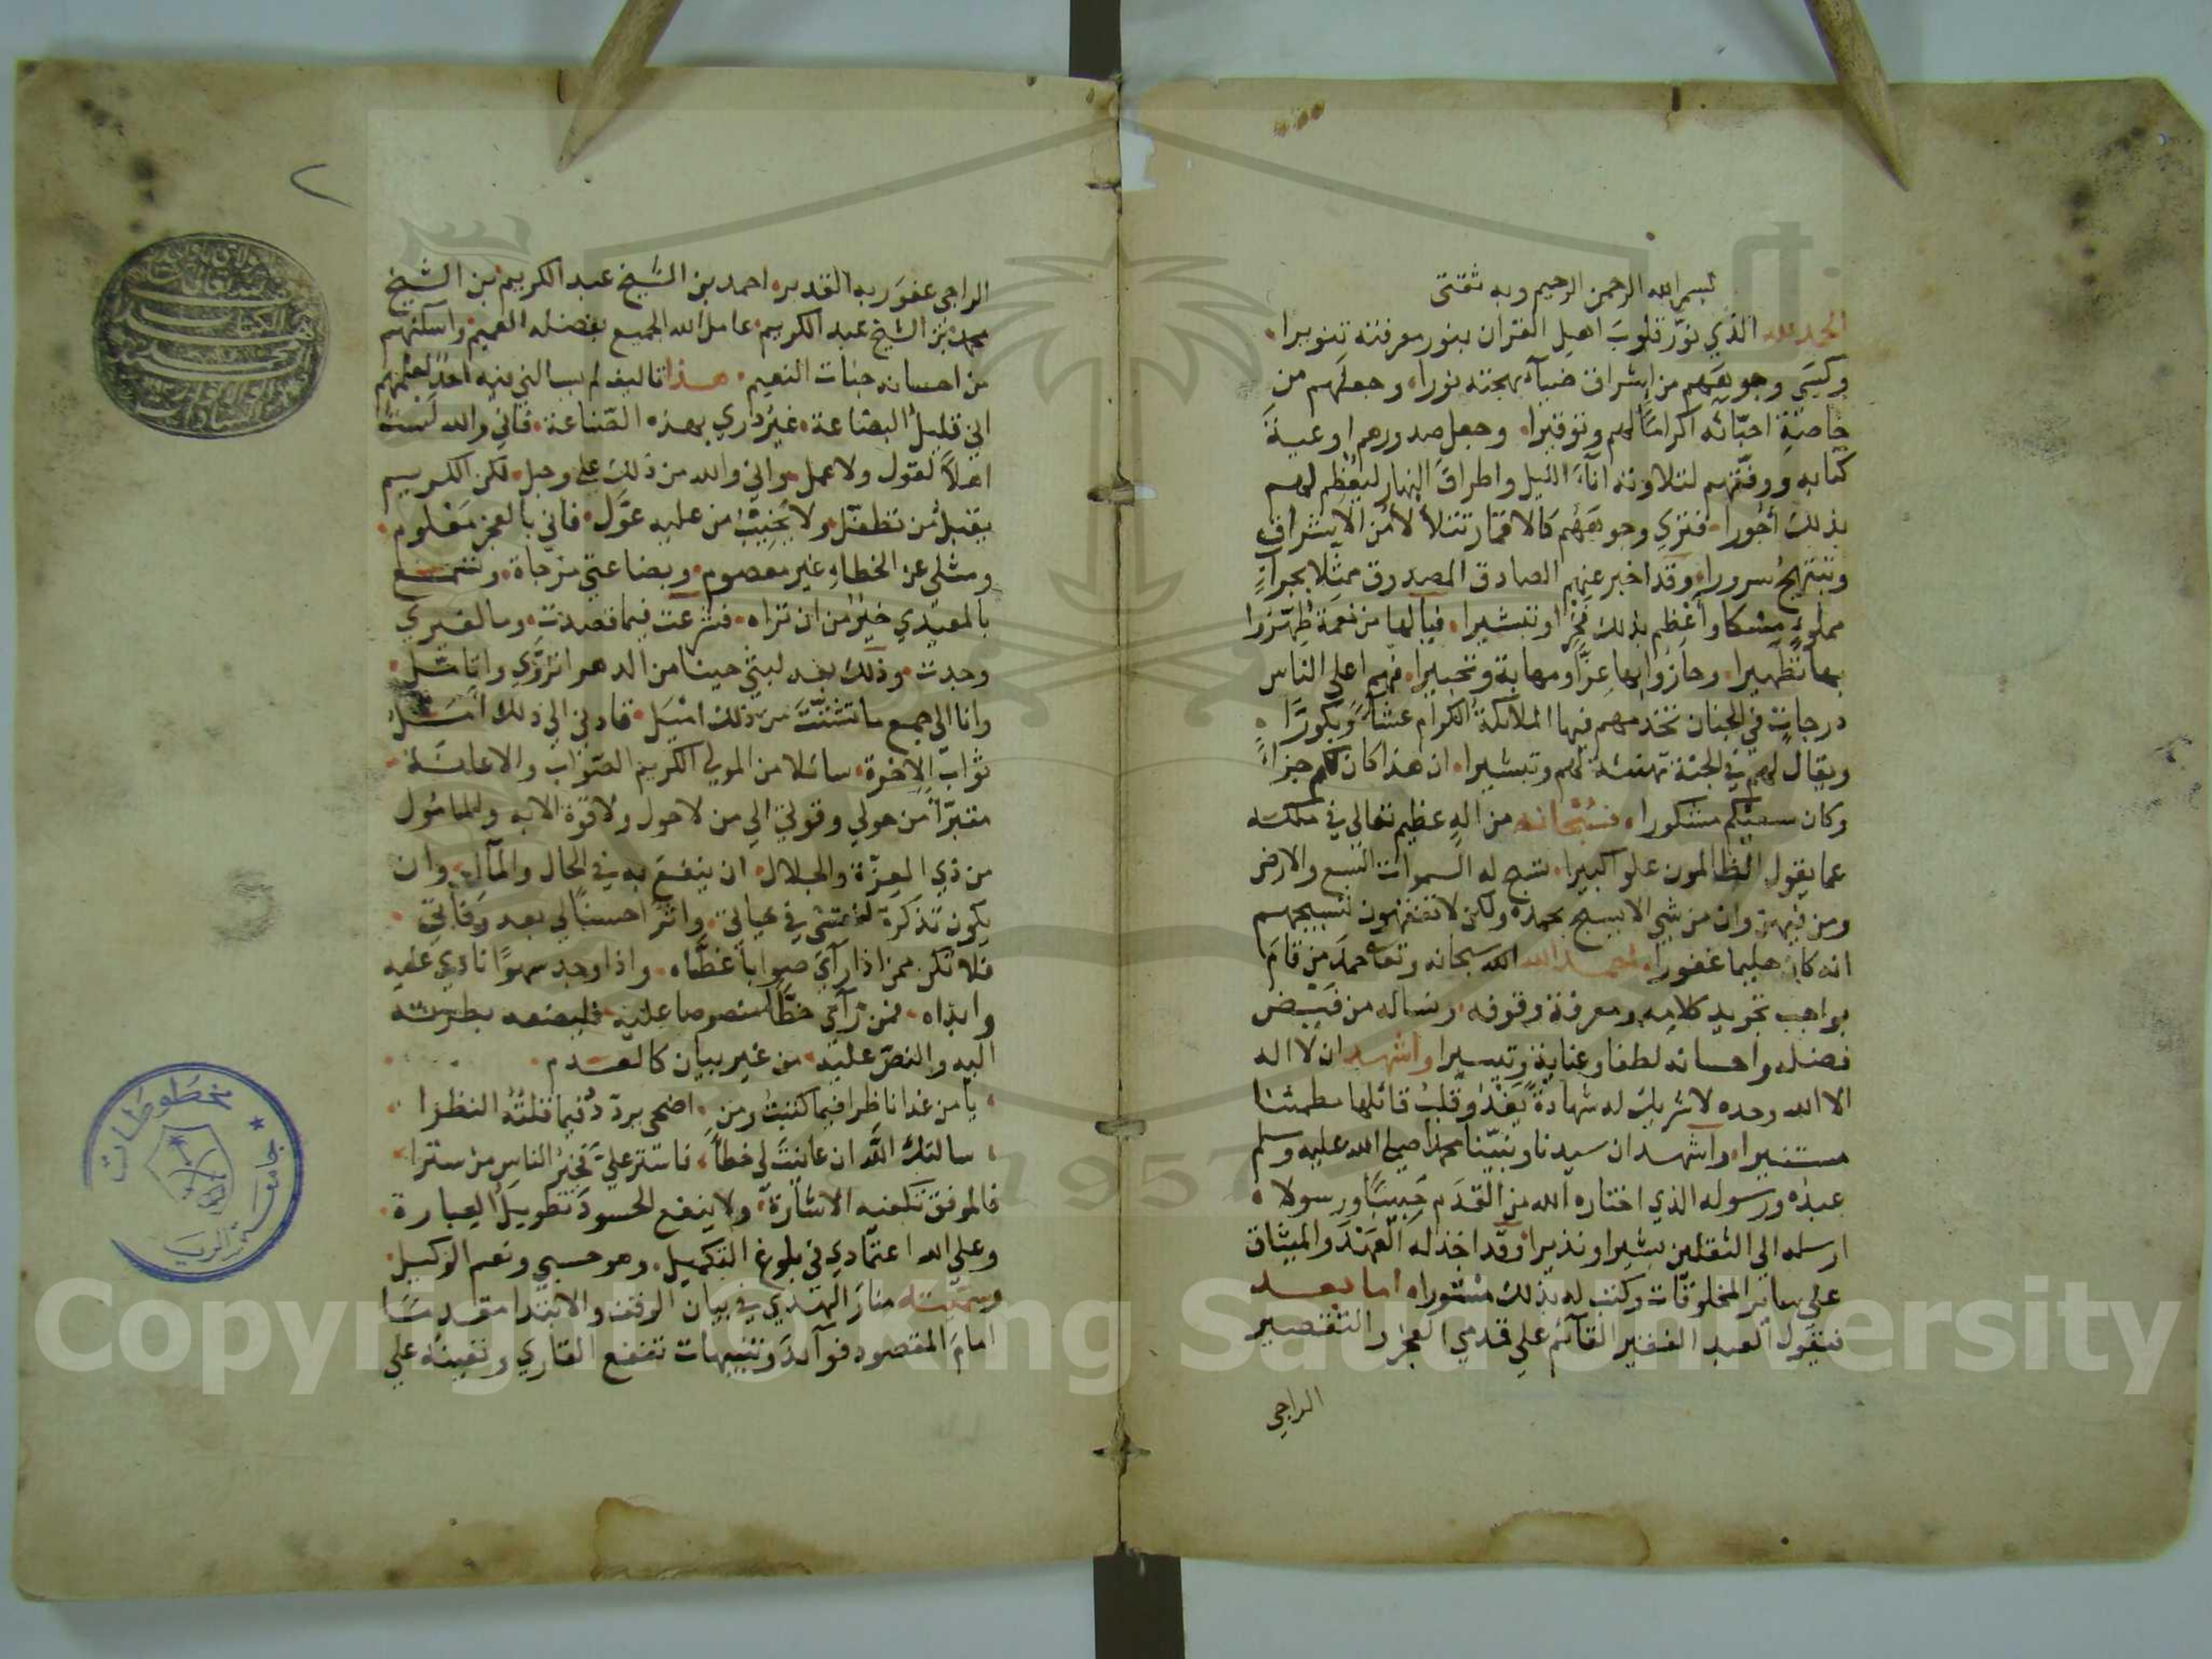 بسم الله الرحمن الرحيم وبه ثقتي
الحمد لله الذي نوّر قلوبَ اهل القران بنور معرفته تنويرا،
وكسَى وجوهَهم من اشراق ضيآء بهجته نورا، وجعلهم من
خاصّة احبّائه اكرامًا لهم وتوقيرا، وجعل صدورهم اوعيةَ
كتابه ووفّقهم لتلاوته انآءَ الليل واطرافَ النهار ليعْظِم لهم
بذلك أجورا، فترى وجوهَهُم كالاقمار تتلألأ من الاشراق
وتبتهجُ سرورا، وقد اخبر عنهم الصادق المصدوق مثلا بجرابٍ
مملوءٍ مسكا وأعْظِم بذلك فخرا وتبشيرا، فيالها من نعمة طُهّروا
بها تطهيرا، وحازُوا بها عِزًّا ومهابة وتحبيرا، فهم اعلى الناس
درجات في الجنان تخدمهم فيها الملائكةُ الكرام عشاءً وبكورًا،
ويقال لهم في الجنة تهنئة لهم وتبشيرا، ان هذا كان لكم جزاءً
وكان سعيكم مشكورا، فسُبْحانه من الهٍ عظيم تعالى في ملكه
عما يقول الظالمون علوا كبيرا، تسبح له السموات السبع والارض
ومن فيهن وان من شي الا يسبح بحمده ولكن لا تفقهون تسبيحهم
انه كان حليما غفورا، احمد الله الله سبحانه وتعا حمدَ من قامَ
بواجب تجويد كلامِه ومعرفة وقوفه، ونساله من فَيْض
فضله واحسانه لطفا وعناية وتيسيرا واشهد ان لا اله
الا الله وحده لا شريك له شهادةً يَغْدُو قلبُ قائلها مطمئنا
مستنيرا، واشهد ان سيدنا ونبيّنا محمدا صلى الله عليه وسلم
عبدُه ورسوله الذي اختاره الله من القدَم حَبيبًا ورسولا،
ارسله الى الثقلين بشيرا ونذيرا، وقد اخذ له العَهْدَ والميثاق
على سائر المخلوقات وكتب له بذلك منشورا، اما بعد
فيقول العبد الفقير القآئم على قدمي العجز والتقصير
الراجي
الراجي عفوَ ربه القدير، احمد بن الشيخ عبد الكريم بن الشيخ
محمد بن الشيخ عبد الكريم، عامل الله الجميع بفضله العميم، واسكنهم
من احسانه جنات النعيم، هذا تاليف لم يسالني فيه احدٌ لعلمهم
اني قليلُ البضاعة، غيرُ داري بهذه الصّناعة، فاني والله لستُ
اهلاً لقول ولا عمل، واني والله من ذلك على وجل، لكن الكريم
يقبلُ من تطفّل، ولا يُخيِّبُ من عليه عوّل، فاني بالعجز مَعْلوم،
ومثلي عن الخطاء غير معصوم، وبضاعتي مزجاة، وتسمع
بالمعيدي خيرٌ من ان تراه، فشرعت فيما قصدت، وما لغيري
وجدت، وذلك بعد لبثي حينا من الدهر اتروّى واتامّل،
وانا الى جمع ما تشتّتَ من ذلك امْيَل، قادني الى ذلك امَل
ثوابِ الاخرة، سائلا من المولى الكريم الصّواب والاعانة،
متبرّأ من حولي وقوتي الى من لا حول ولا قوة الا به والمامُول
من ذي العزّة والجلال، ان ينفعَ به في الحال والمآل، وان
يكون تذكرةً لنفسي في حياتي، واثرًا حسنًا لي بعد وَفاتي،
فلا تكن ممن اذا رأى صوابا غطّاه، واذا وجد سهوًا نادى عليه
وابداه، فمن رآى خطًا منصوصا عليه فليضفه بطرته
اليه والنصّ عليه، من غير بيان كالعدم،
يا من غدا ناظرا فيما كتبتُ ومن، اضحى يردّد فيما قلتُه النظرا،
سالتك اللهَ ان عاينتَ لي خطأً، فاستر عليّ فخيرُ الناسِ من سترا،
فالموفق تكفيه الاشارة، ولا ينفع الحسودَ تطويلُ العبارة،
وعلى الله اعتمادي في بلوغ التكميل، وهو حسبي ونعم الوكيل،
وسمّيته منارَ الهدي في بيان الوقف والابتدا مقدمًا
امامَ المقصود فوآئدَ وتنبيهات تنفع القاري وتعينُه على
٢
مخطوطات
جامعة الرياض
Copyright © King Saud University
1957